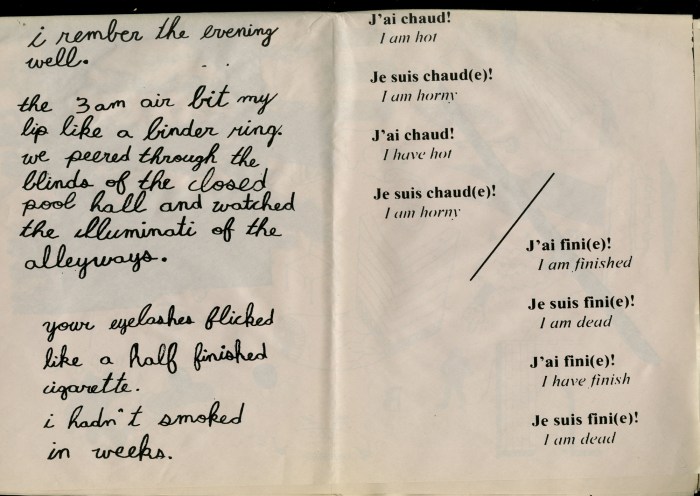 i rember the evening
well.
the 3 am air bit my
lip like a binder ring.
we peered through the
blinds of the closed
pool hall and watched
the illuminati of the
alleyways.
your eyelashes flicked
like a half finished
cigarette.
i hadn't smoked
in weeks.
J'ai chaud!
I am hot
Je suis chaud(e)!
I am horny
J'ai chaud!
I have hot
Je suis chaud(e)!
I am horny
J'ai fini(e)!
I am finished
Je suis fini(e)!
I am dead
J'ai fini(e)!
I have finish
Je suis fini(e)!
I am dead